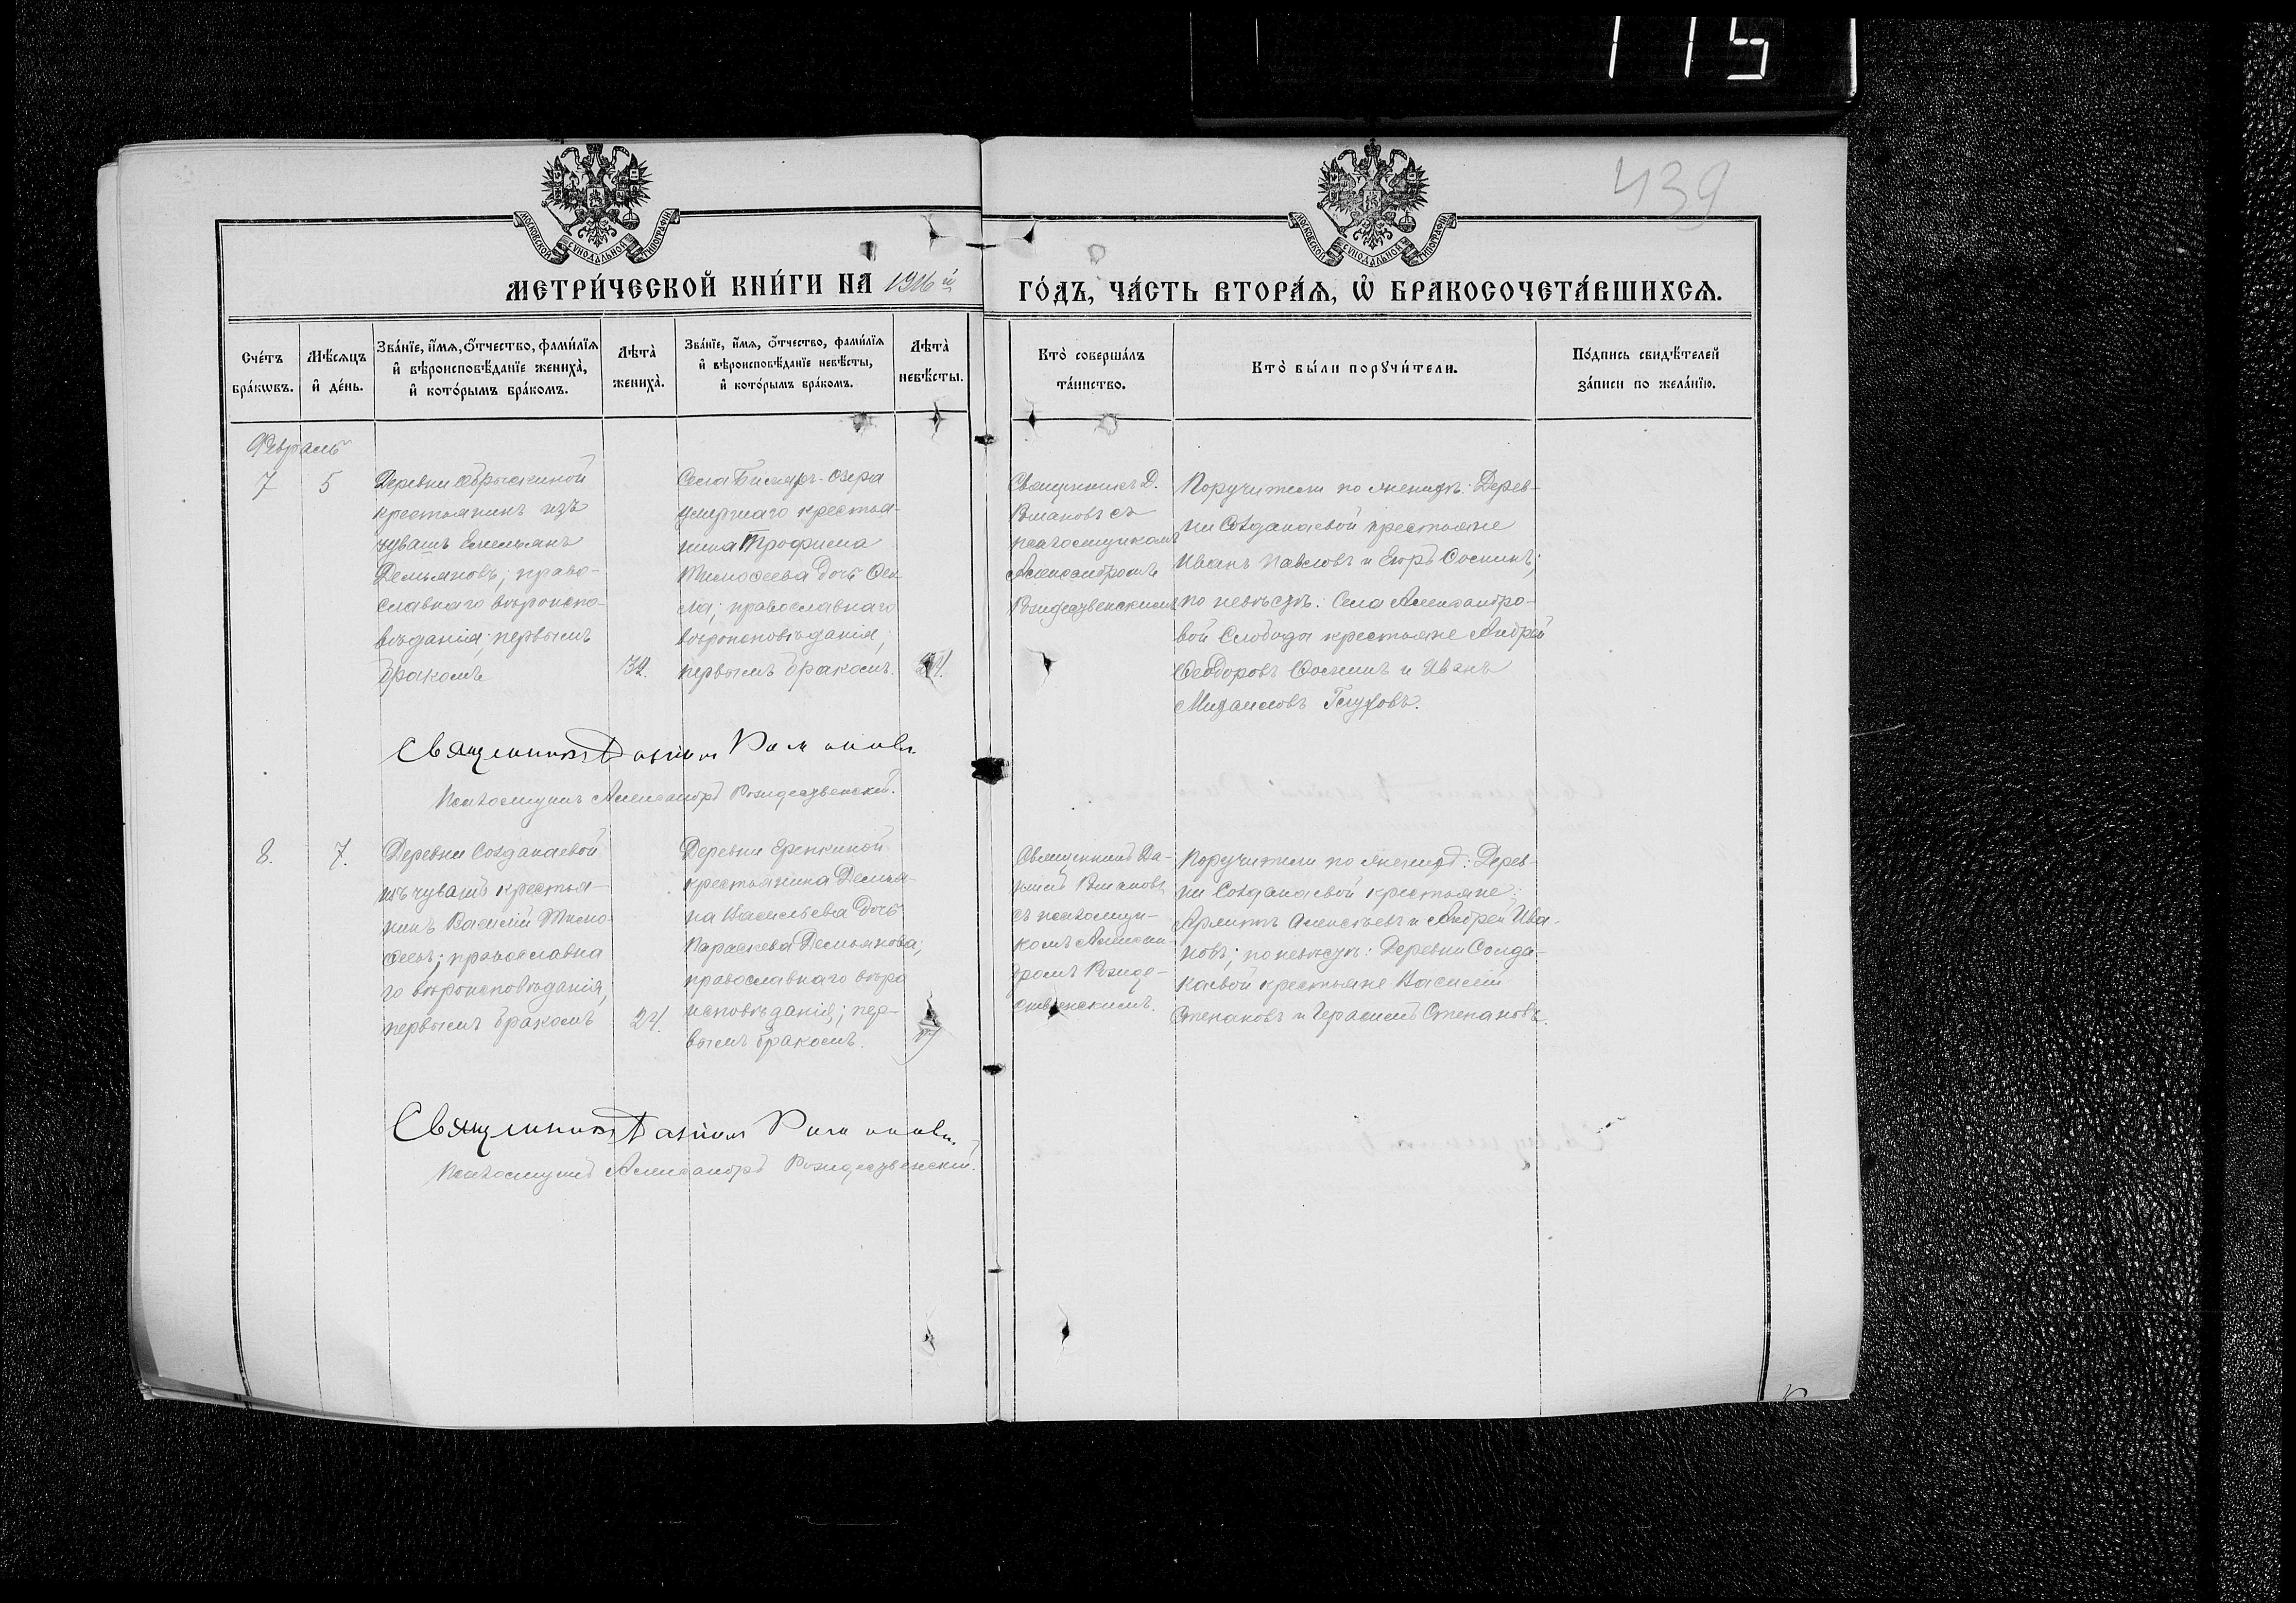 115
439
МОСКОВСКОЙ СѴНОДАЛЬНОЙ ТИПОГРАФІИ
МОСКОВСКОЙ СѴНОДАЛЬНОЙ ТИПОГРАФІИ
МЕТРИ́ЧЕСКОЙ КНИ́ГИ НА 1916 й
ГО́ДЪ, ЧА́СТЬ ВТОРА́Ѧ, Ѡ҆ БРАКОСОЧЕТА́ВШИХСѦ.
Сче́тъ бра́кѡвъ.
Мѣ́сяцъ и҆ де́нь.
Зва́нїе, и҆́мѧ, ѻ҆́тчество, фами́лїѧ
и҆ вѣроисповѣ́данїе жениха̀,
и҆ кото́рымъ бра́комъ.
Лѣта̀ жениха̀.
Зва́нїе, и҆́мѧ, ѻ҆́тчество, фами́лїѧ
и҆ вѣроисповѣ́данїе невѣ́сты,
и҆ кото́рымъ бра́комъ.
Лѣта̀ невѣ́сты.
Кто̀ соверша́лъ
та́инство.
Кто̀ бы́ли порꙋчи́тели.
По́дпись свидѣ́телей
за́писи по жела́нїю.
Февраль
7
5
Деревни
крестьянинъ изъ
чувашъ Емельянъ
Демьяновъ; право-
славнаго вѣроиспо-
вѣданія; первымъ
бракомъ
34.
Села Биляръ-Озера
умершаго крестья-
нина Трофима
Тимофеева дочь Ѳек
ла; православнаго
вѣроисповѣданія;
первымъ бракомъ.
Священникъ Д.
Романовъ съ
псаломщикомъ
Александромъ
Рождественскимъ
Поручители по женихѣ: Дерев-
ни Солдакаевой крестьяне
Иванъ Павловъ и Егоръ
по невѣстѣ: Села Александро-
вой Слободы крестьяне Андрей
Ѳеодоровъ и Иванъ
Михаиловъ Глуховъ.
Священникъ Даніилъ Романовъ.
Псаломщикъ Александръ Рождественскій.
8.
7.
Деревни Солдакаевой
изъ чувашъ крестья-
нинъ Василій Тимо-
феевъ; православна
го вѣроисповѣданія,
первымъ бракомъ
24.
Деревни Еренкиной
крестьянина Демья-
на Васильева дочь
Параскева Демьянова;
православнаго вѣро
исповѣданія; пер-
вымъ бракомъ.
Священникъ Да-
ніилъ Романовъ
съ псаломщи-
комъ Алексан
дромъ Рожде-
ственскимъ.
Поручители по женихѣ: Дерев-
ни Солдакаевой крестьяне:
Алексѣевъ и Андрей Ива-
новъ; по невѣстѣ: Деревни Солда-
каевой крестьяне Василій
Степановъ и Герасимъ Степановъ.
Священникъ Даніилъ Романовъ.
Псаломщикъ Александръ Рождественскій.